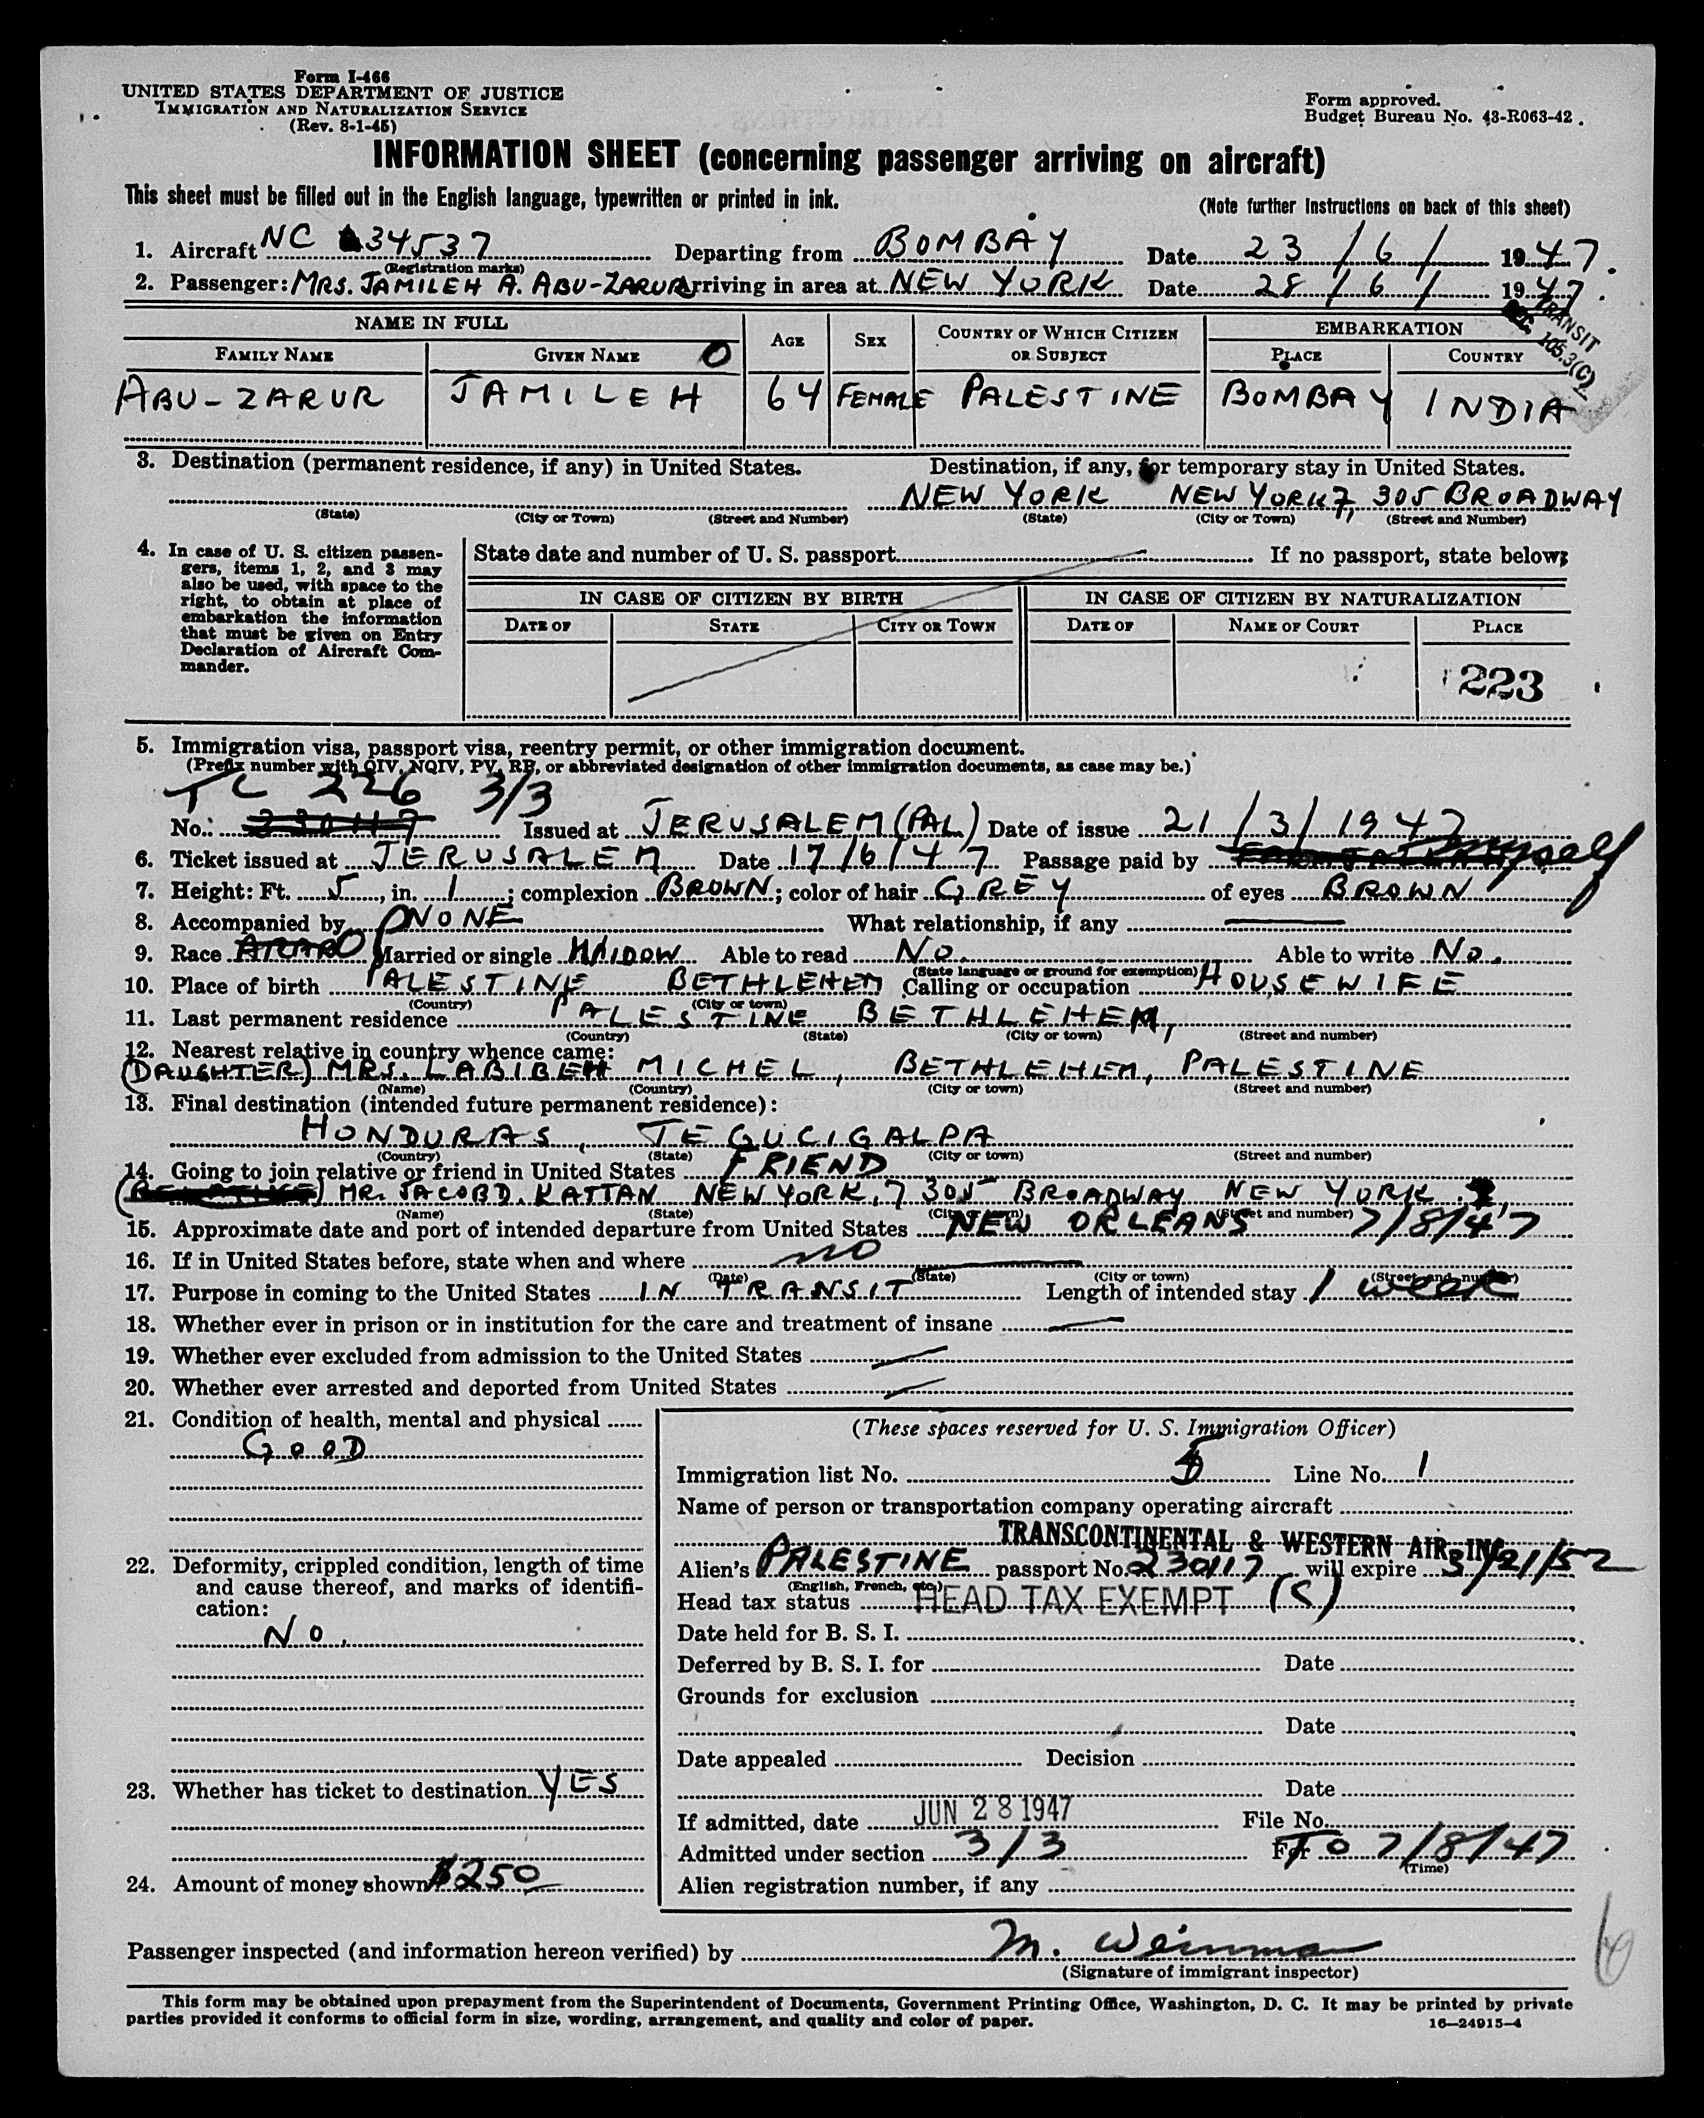 Form I-466
UNITED STATES DEPARTMENT OF JUSTICE
IMMIGRATION AND NATURALIZATION SERVICE
(Rev. 8-1-45)
Form approved.
Budget Bureau No. 43-R063-42.
INFORMATION SHEET (concerning passenger arriving on aircraft)
This sheet must be filled out in the English language, typewritten or printed in ink.
(Note further instructions on back of this sheet)
1. Aircraft NC 34537 Departing from BOMBAY Date 23/6/ 1947.
(Registration marks)
2. Passenger: MRS. JAMILEH A. ABU-ZARUR Arriving in area at NEW YORK Date 28/6/ 1947.
TRANSIT
SEC. 105.3(C)
NAME IN FULL AGE SEX COUNTRY OF WHICH CITIZEN OR SUBJECT EMBARKATION
FAMILY NAME GIVEN NAME O PLACE COUNTRY
ABU-ZARUR JAMILEH 64 FEMALE PALESTINE BOMBAY INDIA
3. Destination (permanent residence, if any) in United States. Destination, if any, for temporary stay in United States.
NEW YORK NEW YORK 7, 305 BROADWAY
(State) (City or Town) (Street and Number) (State) (City or Town) (Street and Number)
4. In case of U. S. citizen passen-
gers, items 1, 2, and 3 may
also be used, with space to the
right, to obtain at place of
embarkation the information
that must be given on Entry
Declaration of Aircraft Com-
mander.
State date and number of U. S. passport If no passport, state below:
IN CASE OF CITIZEN BY BIRTH IN CASE OF CITIZEN BY NATURALIZATION
DATE OF STATE CITY OR TOWN DATE OF NAME OF COURT PLACE
223
5. Immigration visa, passport visa, reentry permit, or other immigration document.
(Prefix number with QIV, NQIV, PV, RP, or abbreviated designation of other immigration documents, as case may be.)
TC 226 3/3
No. 230117 Issued at JERUSALEM (PAL) Date of issue 21/3/1947
6. Ticket issued at JERUSALEM Date 17/6/47 Passage paid by myself
7. Height: Ft. 5, in. 1; complexion BROWN; color of hair GREY of eyes BROWN
8. Accompanied by NONE What relationship, if any
9. Race Married or single WIDOW Able to read NO. Able to write NO.
(State language or ground for exemption)
10. Place of birth PALESTINE BETHLEHEM Calling or occupation HOUSEWIFE
(Country) (City or town)
11. Last permanent residence PALESTINE BETHLEHEM,
(Country) (State) (City or town) (Street and number)
12. Nearest relative in country whence came:
(DAUGHTER) MRS. LABIBEH MICHEL, BETHLEHEM, PALESTINE
(Name) (Country) (City or town) (Street and number)
13. Final destination (intended future permanent residence):
HONDURAS, TEGUCIGALPA
(Country) (State) (City or town) (Street and number)
14. Going to join relative or friend in United States FRIEND
MR. JACOB D. KATTAN NEW YORK, 7 305 BROADWAY NEW YORK
(Name) (State) (City or town) (Street and number)
15. Approximate date and port of intended departure from United States NEW ORLEANS 7/8/47
16. If in United States before, state when and where no
(Date) (State) (City or town) (Street and number)
17. Purpose in coming to the United States IN TRANSIT Length of intended stay 1 week
18. Whether ever in prison or in institution for the care and treatment of insane
19. Whether ever excluded from admission to the United States
20. Whether ever arrested and deported from United States
21. Condition of health, mental and physical
GOOD
22. Deformity, crippled condition, length of time
and cause thereof, and marks of identifi-
cation:
NO.
23. Whether has ticket to destination YES
24. Amount of money shown $250
(These spaces reserved for U. S. Immigration Officer)
Immigration list No. 5 Line No. 1
Name of person or transportation company operating aircraft
TRANSCONTINENTAL & WESTERN AIR, INC.
Alien's PALESTINE passport No. 230117 will expire 3/21/52
(English, French, etc.)
Head tax status HEAD TAX EXEMPT (S)
Date held for B. S. I.
Deferred by B. S. I. for Date
Grounds for exclusion
Date
Date appealed Decision
Date
If admitted, date JUN 28 1947 File No.
Admitted under section 3/3 For TO 7/8/47
(Time)
Alien registration number, if any
Passenger inspected (and information hereon verified) by M. Weinman
(Signature of immigrant inspector)
This form may be obtained upon prepayment from the Superintendent of Documents, Government Printing Office, Washington, D. C. It may be printed by private
parties provided it conforms to official form in size, wording, arrangement, and quality and color of paper. 16—24915-4